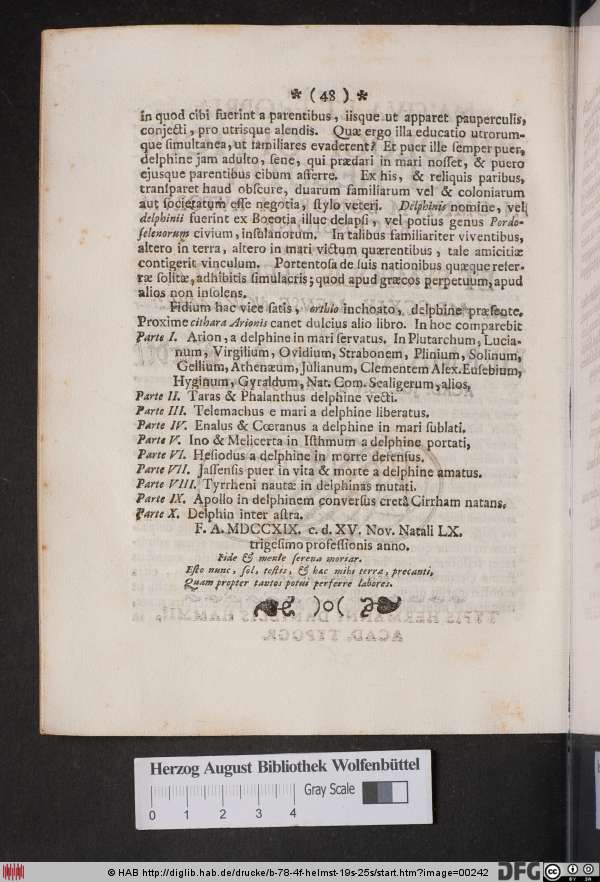 * (48) *
in quod cibi fuerint a parentibus, iisque ut apparet pauperculis,
conjecti, pro utrisque alendis. Quæ ergo illa educatio utrorum-
que simultanea, ut familiares evaderent? Et puer ille semper puer,
delphine jam adulto, sene, qui prædari in mari nosset, & puero
ejusque parentibus cibum afferre. Ex his, & reliquis paribus,
transparet haud obscure, duarum familiarum vel & coloniarum
aut societatum esse negotia, stylo veteri. Delphinis nomine, vel
delphinii fuerint ex Boeotia illuc delapsi, vel potius genus Pordo-
selenorum civium, insulanorum. In talibus familiariter viventibus,
altero in terra, altero in mari victum quærentibus, tale amicitiæ
contigerit vinculum. Portentosa de suis nationibus quæque refer-
ræ solitæ, adhibitis simulacris; quod apud græcos perpetuum, apud
alios non insolens.
Fidium hac vice satis, orthio inchoato, delphine præsente.
Proxime cithara Arionis canet dulcius alio libro. In hoc comparebit
Parte I. Arion, a delphine in mari servatus. In Plutarchum, Lucia-
num, Virgilium, Ovidium, Strabonem, Plinium, Solinum,
Gellium, Athenæum, Julianum, Clementem Alex. Eusebium,
Hyginum, Gyraldum, Nat. Com. Scaligerum, alios,
Parte II. Taras & Phalanthus delphine vecti.
Parte III. Telemachus e mari a delphine liberatus.
Parte IV. Enalus & Cœranus a delphine in mari sublati.
Parte V. Ino & Melicerta in Isthmum a delphine portati,
Parte VI. Hesiodus a delphine in morte defensus.
Parte VII. Jassensis puer in vita & morte a delphine amatus.
Parte VIII. Tyrrheni nautæ in delphinas mutati.
Parte IX. Apollo in delphinem conversus cretâ Cirrham natans.
Parte X. Delphin inter astra.
F. A. MDCCXIX. c. d. XV. Nov. Natali LX.
trigesimo professionis anno.
Fide & mente serena moriar.
Esto nunc, sol, testis, & hac mihi terra, precanti,
Quam propter tantos potui perferre labores.
)o(
Herzog August Bibliothek Wolfenbüttel
0 1 2 3 4 Gray Scale
© HAB http://diglib.hab.de/drucke/b-78-4f-helmst-19s-25s/start.htm?image=00242
DFG
cc BY SA